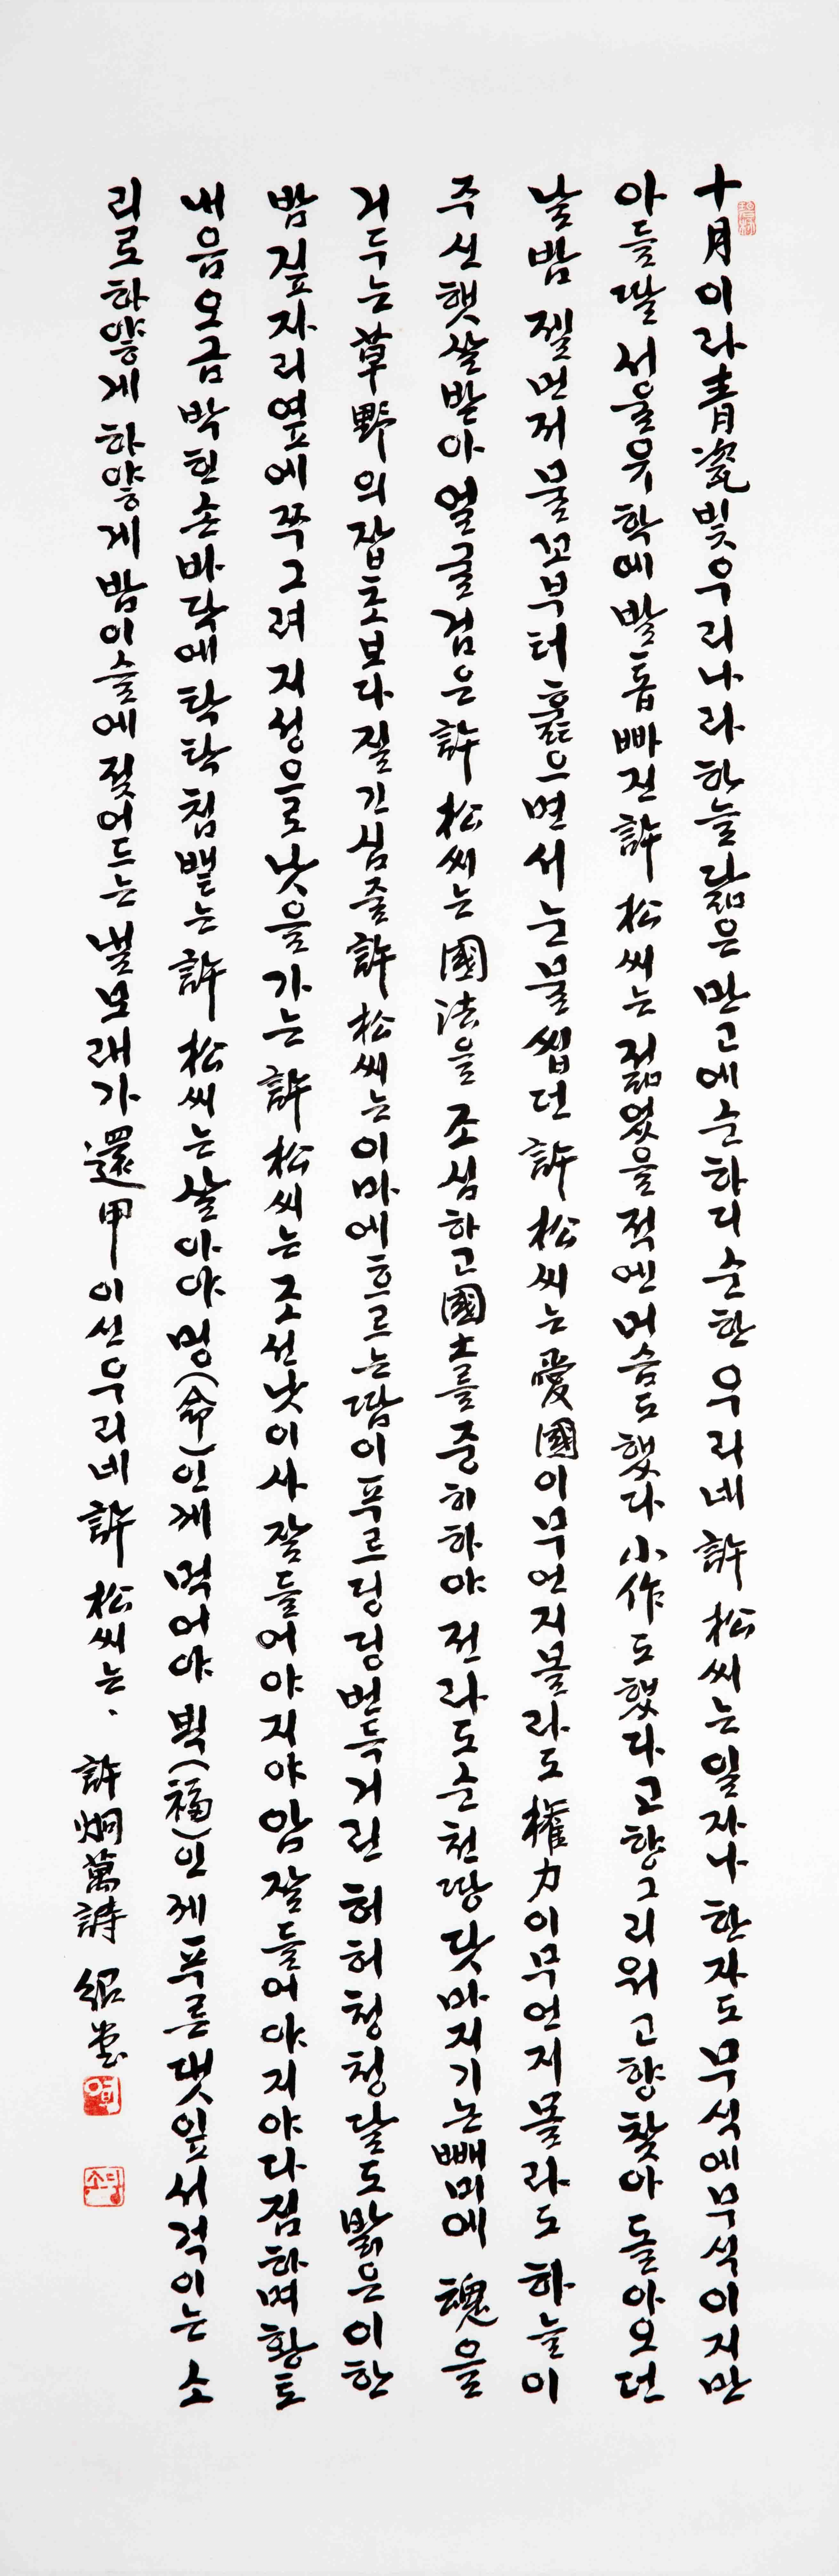 十月이라 靑瓷빛 우리나라 하늘 닮은 만고에 순하디 순한 우리네 許松씨는 일자나 한자도 무식에 무식이지만
아들딸 서울유학에 발톱 빠진 許松씨는 젊었을 적엔 머슴도 했다 小作도 했다 고향 그리워 고향 찾아 돌아오던
날 밤 젤 먼저 물꼬부터 훑으면서 눈물 씹던 許松씨는 愛國이 무언지 몰라도 權力이 무언지 몰라도 하늘이
주신 햇살 받아 얼굴 검은 許松씨는 國法을 조심하고 國土를 중히 하야 전라도 순천땅 닷마지기 논빼미에 魂을
거두는 草野의 잡초보다 질긴 심줄 許松씨는 이마에 흐르는 땀이 푸르딩딩 번득거린 허허청청 달도 밝은 이 한
밤 짚자리 옆에 쭈그려 지성으로 낫을 가는 許松씨는 조선낫이사 잘 들어야지야 암 잘 들어야지야 다짐하며 황토
내음 오금 박힌 손바닥에 탁탁 침 뱉는 許松씨는 살아야 멩(命)인께 먹어야 븍(福)인께 푸른 댓잎 서걱이는 소
리로 하얗게 하얗게 밤이슬에 젖어드는 눌보래가 還甲이신 우리네 許松씨는、 許炯萬詩 紹堂
소당